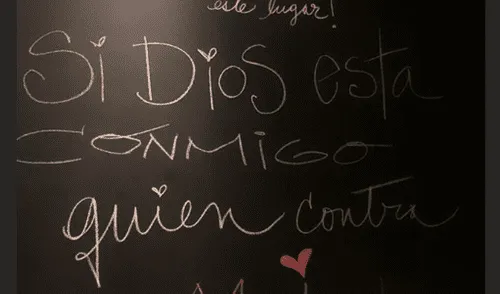 este lugar!
Si Dios esta
CONMIGO
quien contra